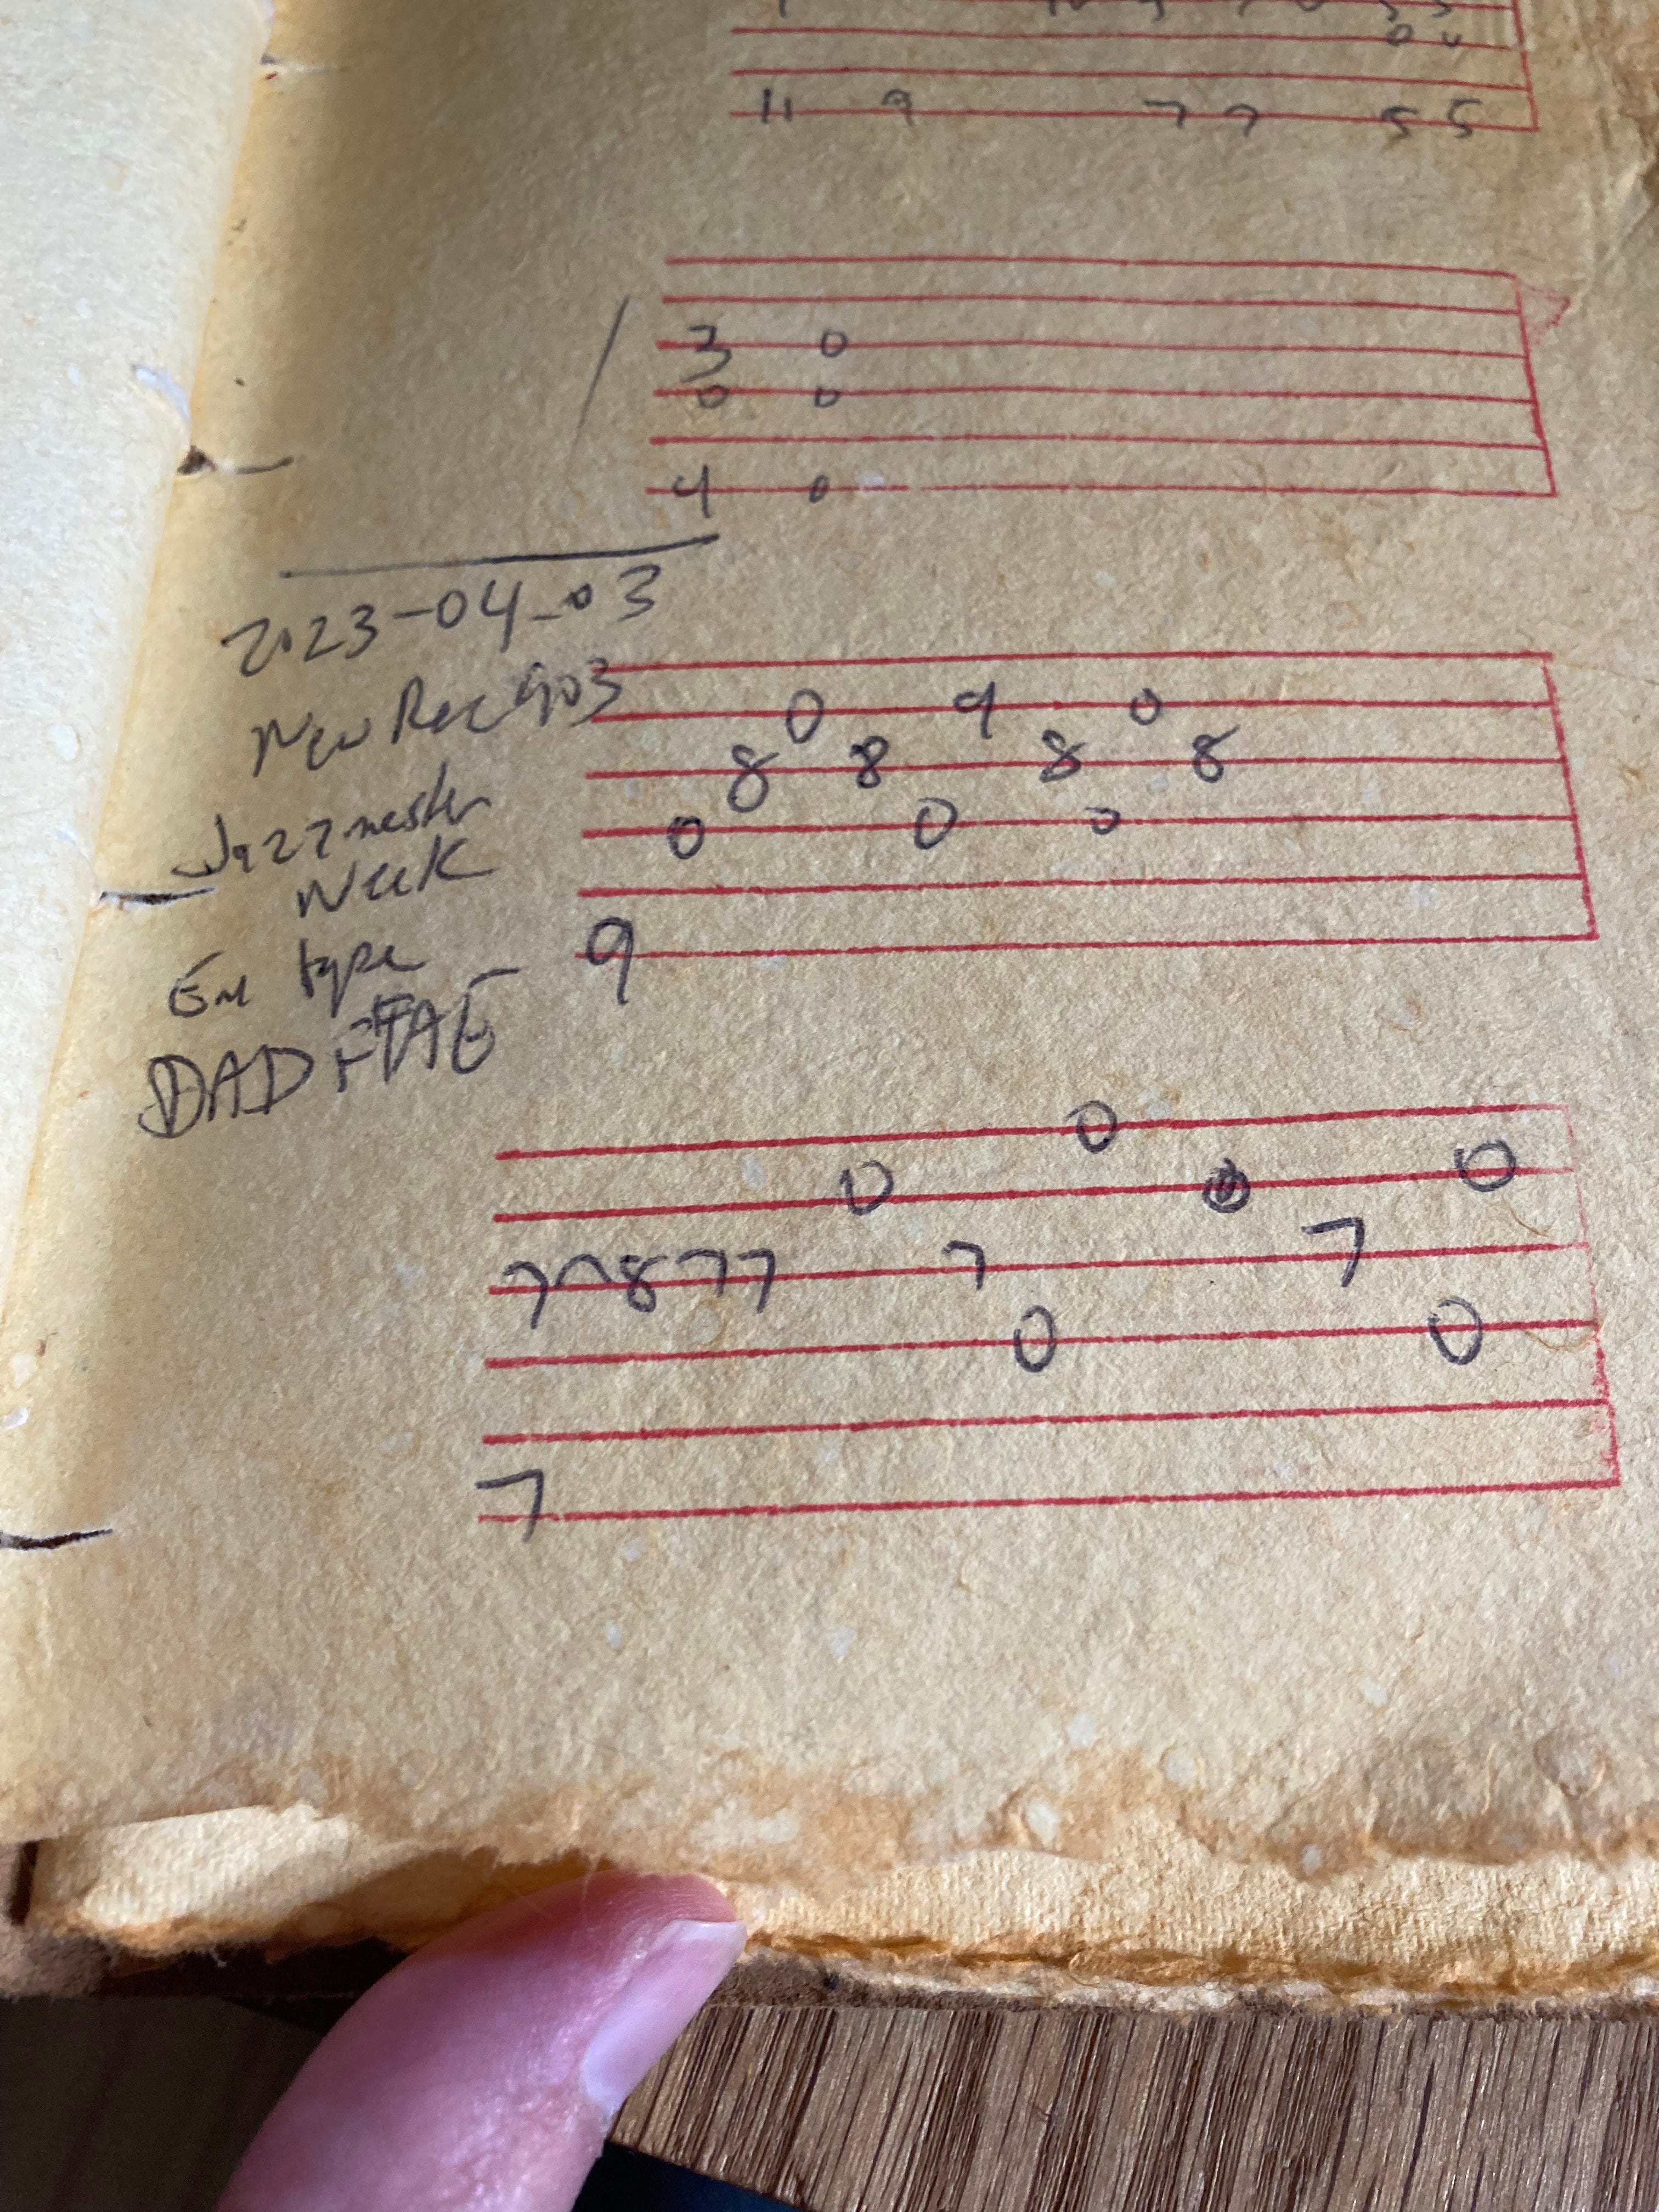 0
11 9 7 7 5 5
3 0
0 0
4 0
2023-04-03
New Rec 903
0 9 0
8 8 8 8
Jazzmaster
0 0 0
Week
9
Em type
DAD FAE
0
0 0 0
7 8 7 7 7 7
0 0
7